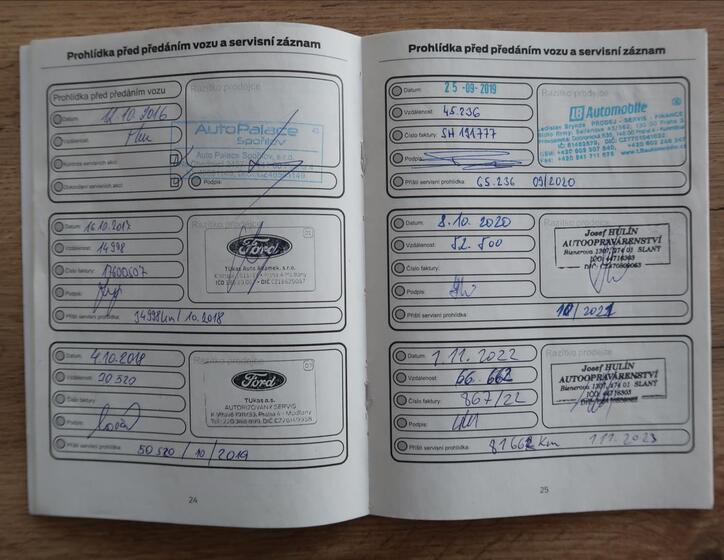 Prohlídka před předáním vozu a servisní záznam
Prohlídka před předáním vozu
Datum: 12.10.2016
Vzdálenost:
Kontrola servisních akcí
Dokončení servisních akcí
Razítko prodejce
AutoPalace
Spořilov
Auto Palace Spořilov, s.r.o.
Podpis:
Datum: 16.10.2017
Vzdálenost: 14998
Číslo faktury: 17600607
Podpis:
Razítko prodejce
Ford
TUkas Auto Adamek, s.r.o.
Příští servisní prohlídka: 34998km / 10.2018
Datum: 4.10.2018
Vzdálenost: 30 520
Číslo faktury:
Podpis:
Razítko prodejce
07
Ford
TUkas a.s.
AUTORIZOVANÝ SERVIS
Příští servisní prohlídka: 50 520 / 10 / 2019
24
Prohlídka před předáním vozu a servisní záznam
Datum: 25 -09- 2019
Vzdálenost: 45.236
Číslo faktury: SH 191777
Podpis:
Razítko prodejce
LB Automobile
PRODEJ - SERVIS - FINANCE
Příští servisní prohlídka: 65.236 09/2020
Datum: 8.10. 2020
Vzdálenost: 52 500
Číslo faktury:
Podpis:
Razítko prodejce
Josef HULÍN
AUTOOPRAVÁRENSTVÍ
Bienerova 1307, 274 01 SLANÝ
IČO 44716303
Příští servisní prohlídka: 10/2021
Datum: 1.11. 2022
Vzdálenost: 66. 662
Číslo faktury: 867/22
Podpis:
Razítko prodejce
Josef HULÍN
AUTOOPRAVÁRENSTVÍ
Bienerova 1307, 274 01 SLANÝ
IČO 44716303
Příští servisní prohlídka: 81662 Km 1.11.2023
25